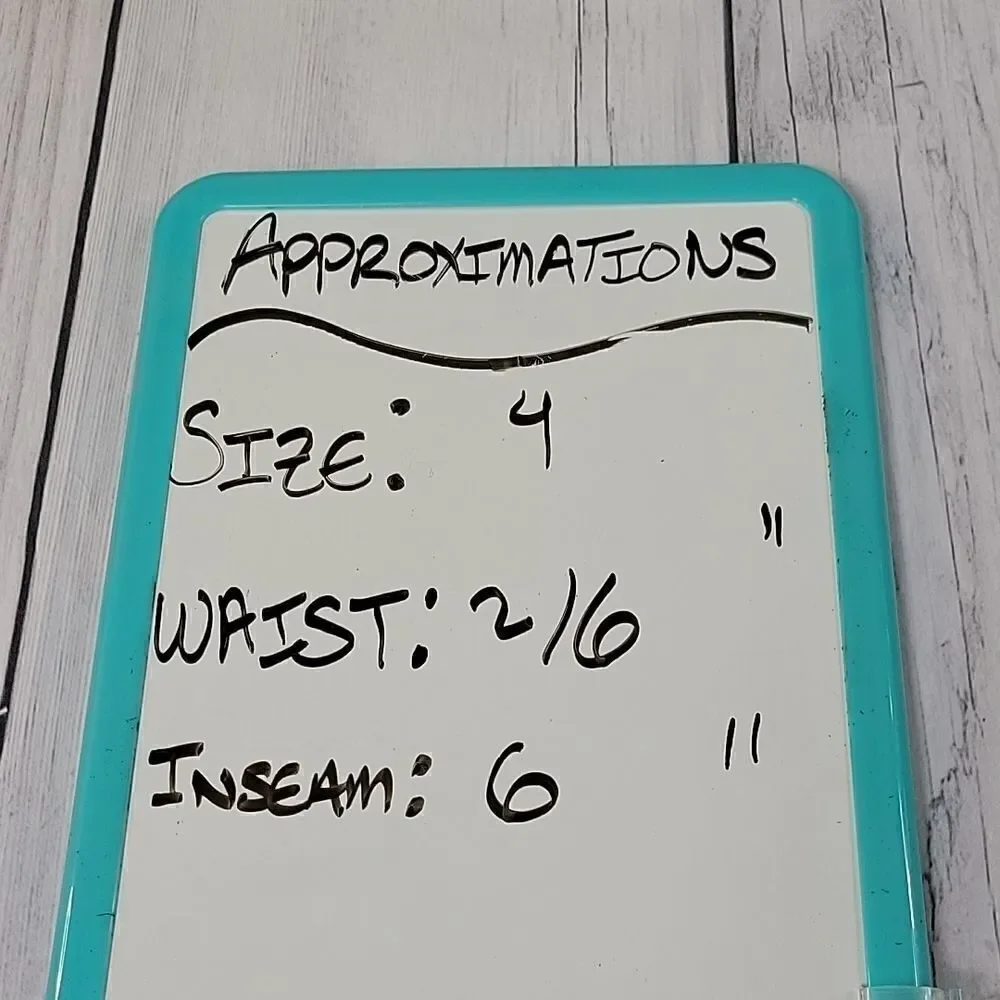 APPROXIMATIONS
SIZE: 4
WAIST: 2/6 "
INSEAM: 6 "